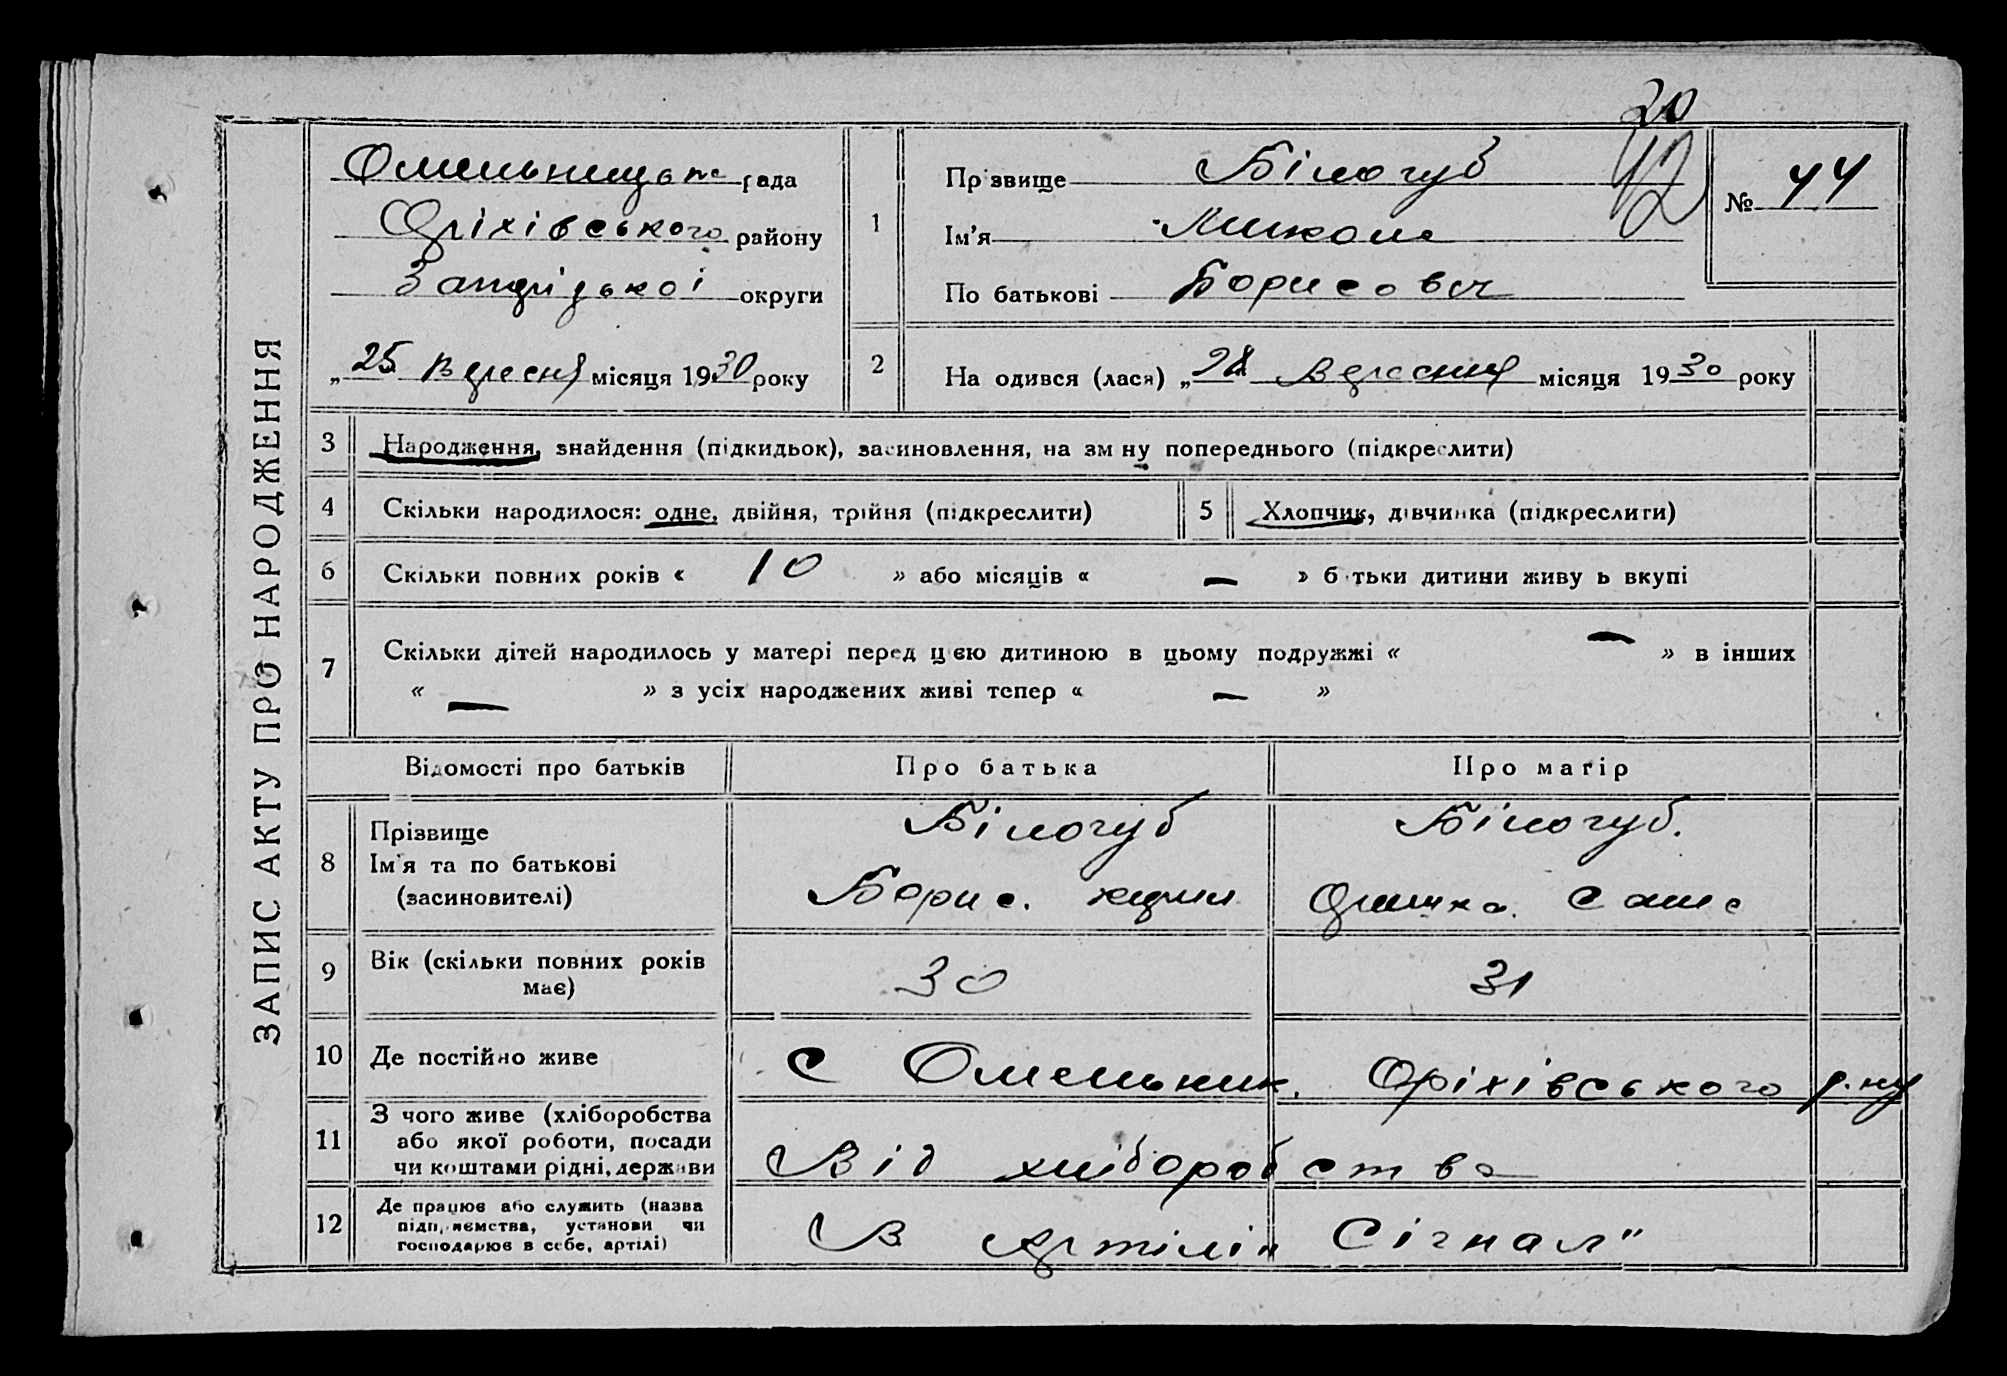 20
ЗАПИС АКТУ ПРО НАРОДЖЕННЯ
Омельницька рада
Оріхівського району
Запоріської округи
„25 Вересня місяця 1930 року
1
Прізвище Білогуб
Ім'я Микола
По батькові Борисович
42
№ 44
2 На одився (лася) „ Вересня місяця 1930 року
3 Народження, знайдення (підкидьок), засиновлення, на зм ну попереднього (підкреслити)
4 Скільки народилося: одне, двійня, трійня (підкреслити) 5 Хлопчик, дівчинка (підкреслити)
6 Скільки повних років « 10 » або місяців « — » б тьки дитини живу ь вкупі
7 Скільки дітей народилось у матері перед цією дитиною в цьому подружжі « — » в інших
« — » з усіх народжених живі тепер « — »
Відомості про батьків Про батька Про матір
8 Прізвище Білогуб Білогуб.
Ім'я та по батькові
(засиновителі) Борис. Сам
9 Вік (скільки повних років 30 31
має)
10 Де постійно живе с Омельник. Оріхівського р.ну
11 З чого живе (хліборобства
або якої роботи, посади
чи коштами рідні, держави Від хліборобства
12 Де працює або служить (назва
підприємства, установи чи
господарює в себе, артілі) В Артілі „Сігнал"